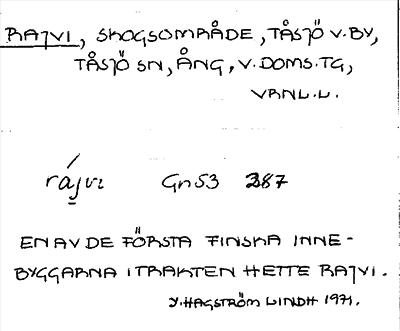 RAJVI, SKOGSOMRÅDE, TÅSJÖ V. BY,
TÅSJÖ SN, ÅNG, V. DOMS. TG,
VRNL.L.
rájvi Gn53 387
EN AV DE FÖRSTA FINSKA INNE-
BYGGARNA I TRAKTEN HETTE RAJVI.
Y. HAGSTRÖM LINDH 1971.